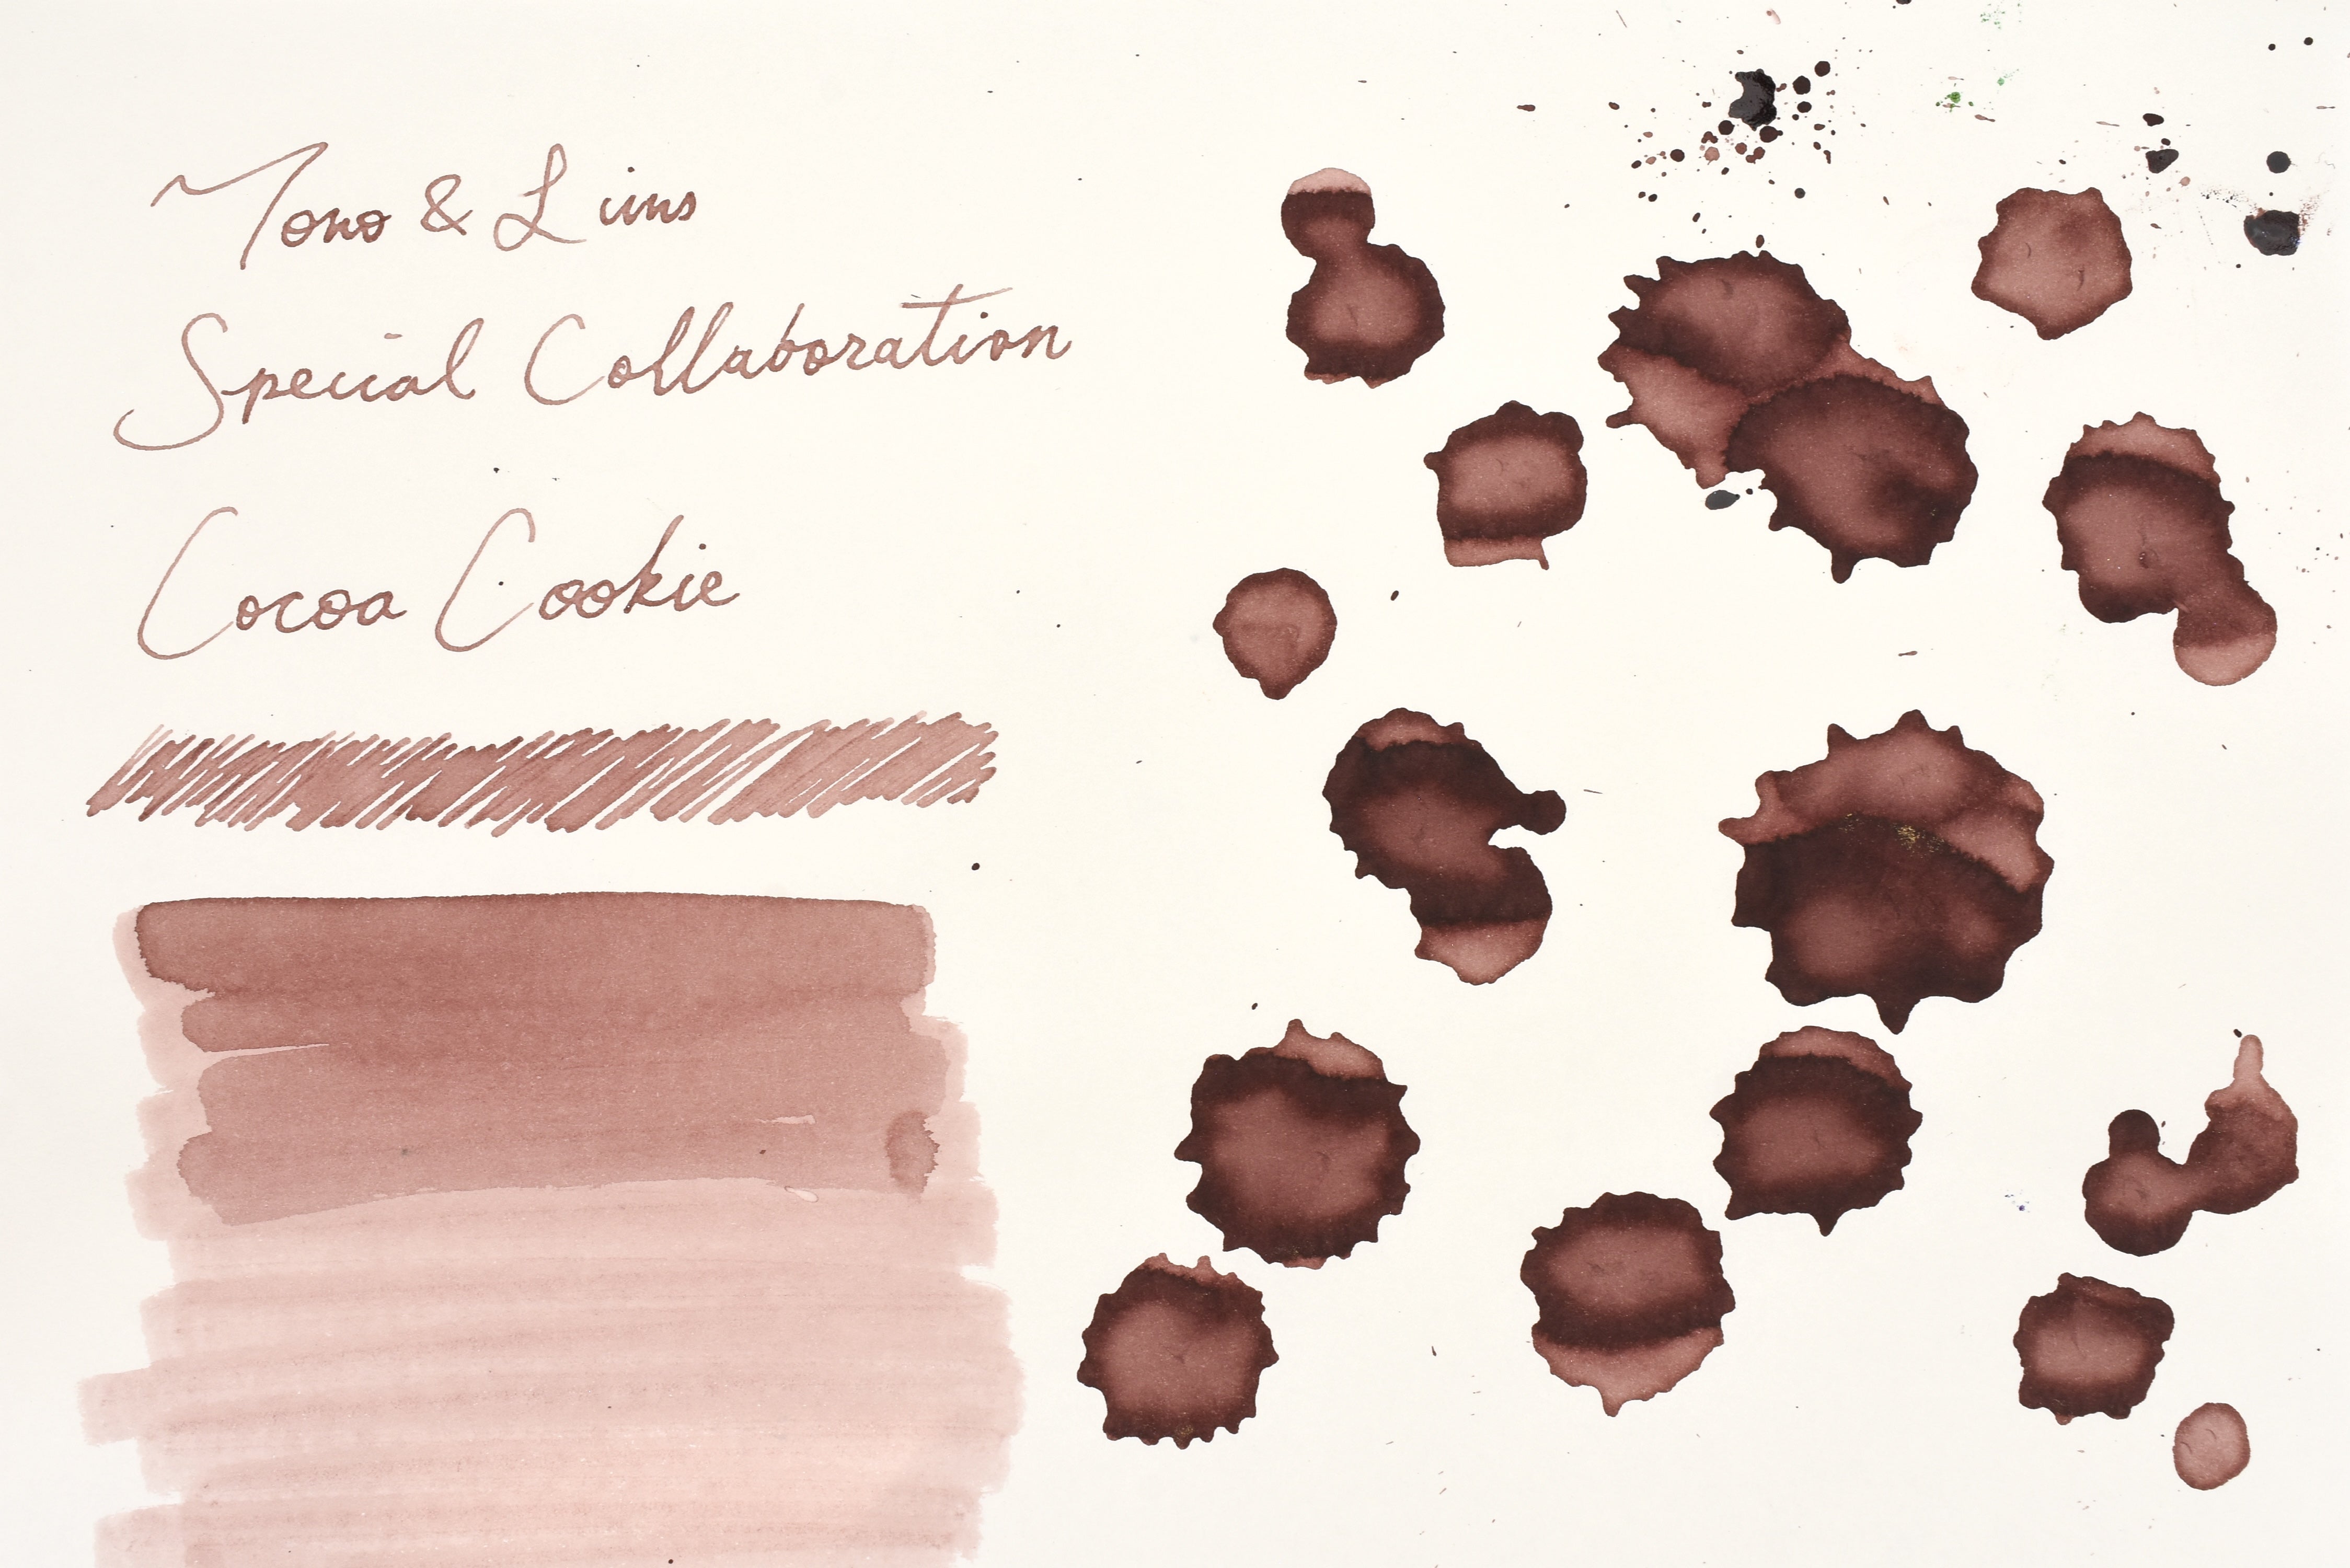 Tono & Lims
Special Collaboration
Cocoa Cookie